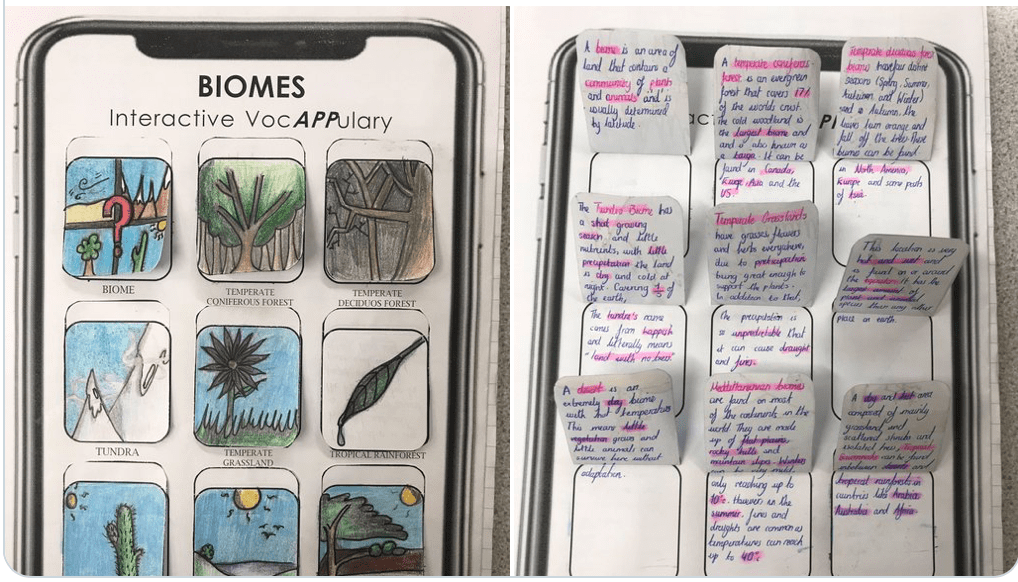 BIOMES
Interactive VocAPPulary
BIOME
TEMPERATE
CONIFEROUS FOREST
TEMPERATE
DECIDUOS FOREST
TUNDRA
TEMPERATE
GRASSLAND
TROPICAL RAINFOREST
A biome is an area of
land that contains a
community of plants
and animals and is
usually determined
by latitude.
A temperate coniferous
forest is an evergreen
forest that covers 17%
of the worlds crust.
The cold woodland is
the largest biome and
and is also known as
a taiga. It can be
found in Canada,
Europe, Asia and the
US.
Temperate deciduos forest
biomes have four distinct
seasons (Spring, Summer,
Autumn and Winter)
and in Autumn, the
leaves turn orange and
fall off the trees. These
biomes can be found
in North America,
Europe and some parts
of Asia.
The Tundra Biome has
a short growing
season and little
nutrients, with little
precipitation the land
is dry and cold at
night. Covering of
the earth,
The tundra's name
comes from
and litterally means
"land with no trees"
Temperate Grasslands
have grasses, flowers
and herbs everywhere,
due to precipitation
being great enough to
support the plants.
In addition to that,
The precipitation is
so unpredictable that
it can cause draught
and fires.
This location is very
hot and wet and
is found on or around
the equator. It has the
largest amount of
plant and animal
species than any other
place on earth.
A desert is an
extremely dry biome
with hot temperatures
This means little
vegetation grows and
little animals can
survive here without
adaptation.
Mediterranean biomes
are found on most
of the continents in the
world. They are made
up of flat plains,
rocky hills and
mountain slopes. Winters
can be very mild,
only reaching up to
10°c. However in the
summer, fires and
draughts are common as
temperatures can reach
up to 40°c
A dry and hot area
composed of mainly
grassland and
scattered shrubs and
isolated trees.
can be found
inbetween and
tropical rainforests in
countries like
Australia and Africa.